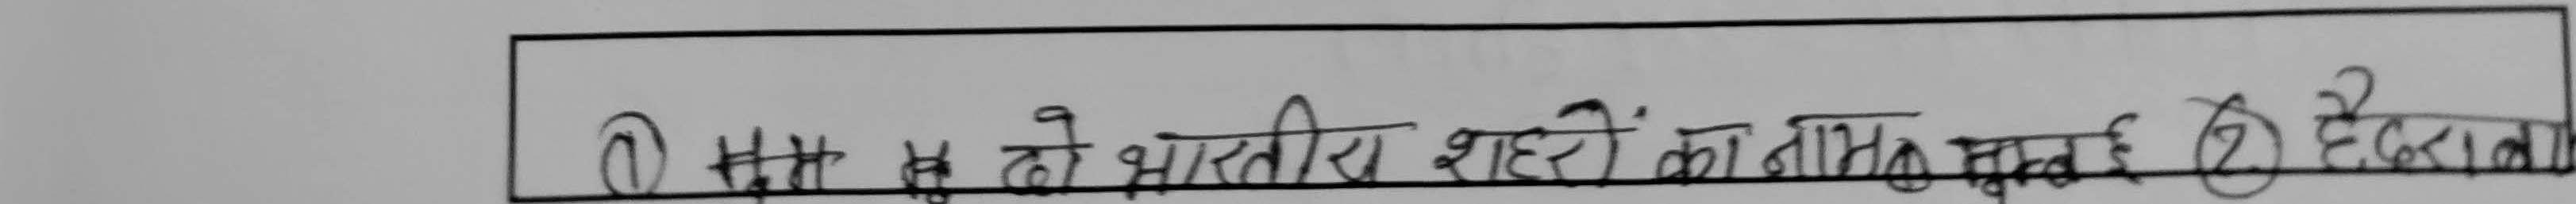 ① दो भारतीय शहरों का नाम ① मुम्बई ② हैदराबा